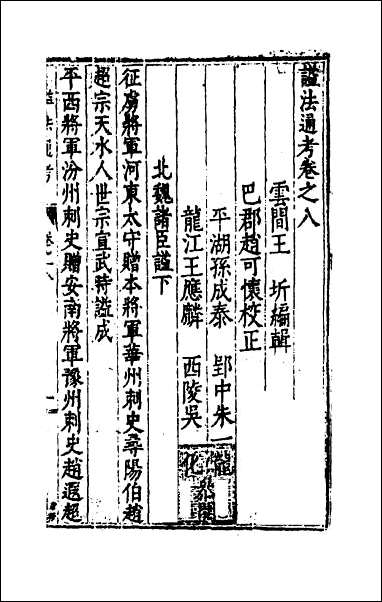 諡法通考卷之八
雲間王　圻編輯
巴郡趙可懷校正
平湖孫成泰　郢中朱一龍
龍江王應麟　西陵吳化　參閱
北魏諸臣諡下
征虜將軍河東太守贈本將軍華州刺史尋陽伯趙
超宗天水人世宗宣武時諡成
平西將軍汾州刺史贈安南將軍豫州刺史趙遐超
諡法通考　卷之八　一